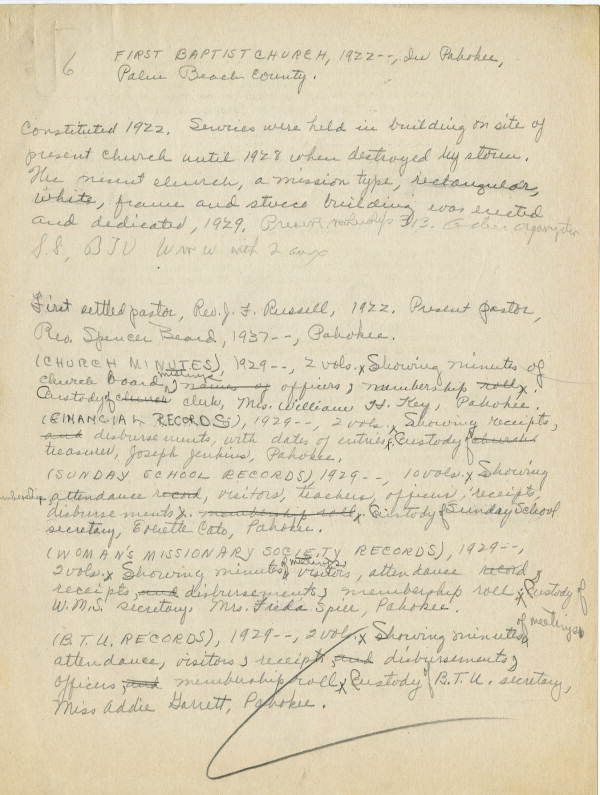 6 FIRST BAPTIST CHURCH, 1922--, In Pahokee,
Palm Beach County.
Constituted 1922. Services were held in building on site of
present church until 1928 when destroyed by storm.
The present church, a mission type, rectangular,
white, frame and stucco building was erected
and dedicated, 1929. Present membership Other organization
S.S, BTU W M U with 2 aux
First settled pastor, Rev. J. F. Russell, 1922. Present pastor,
Rev. Spencer Beard, 1937--, Pahokee.
(CHURCH MINUTES), 1929--, 2 vols. x Showing minutes of
church board meetings, names of officers, membership roll x.
Custody of church clerk, Mrs. William H. Key, Pahokee.
(FINANCIAL RECORDS), 1929--, 2 vols. x Showing receipts,
and disbursements, with dates of entries x Custody of church
treasurer, Joseph Jenkins, Pahokee.
(SUNDAY SCHOOL RECORDS) 1929--, 10 vols. x Showing
membership, attendance record, visitors, teachers, officers, receipts,
disbursements x. membership roll x Custody of Sunday School
secretary, Evrette Cato, Pahokee.
(WOMAN'S MISSIONARY SOCIETY RECORDS), 1929--,
2 vols. x Showing minutes of meetings, visitors, attendance record,
receipts, and disbursements, membership roll x Custody of
W.M.S. secretary, Mrs. Frieda Spier, Pahokee.
(B.T.U. RECORDS), 1929--, 2 vols. x Showing minutes of meetings,
attendance, visitors, receipts, and disbursements,
officers, and membership roll x Custody of B.T.U. secretary,
Miss Addie Garrett, Pahokee.